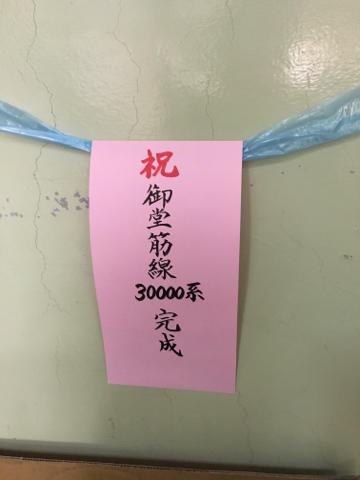 祝
御堂筋線
30000系
完成